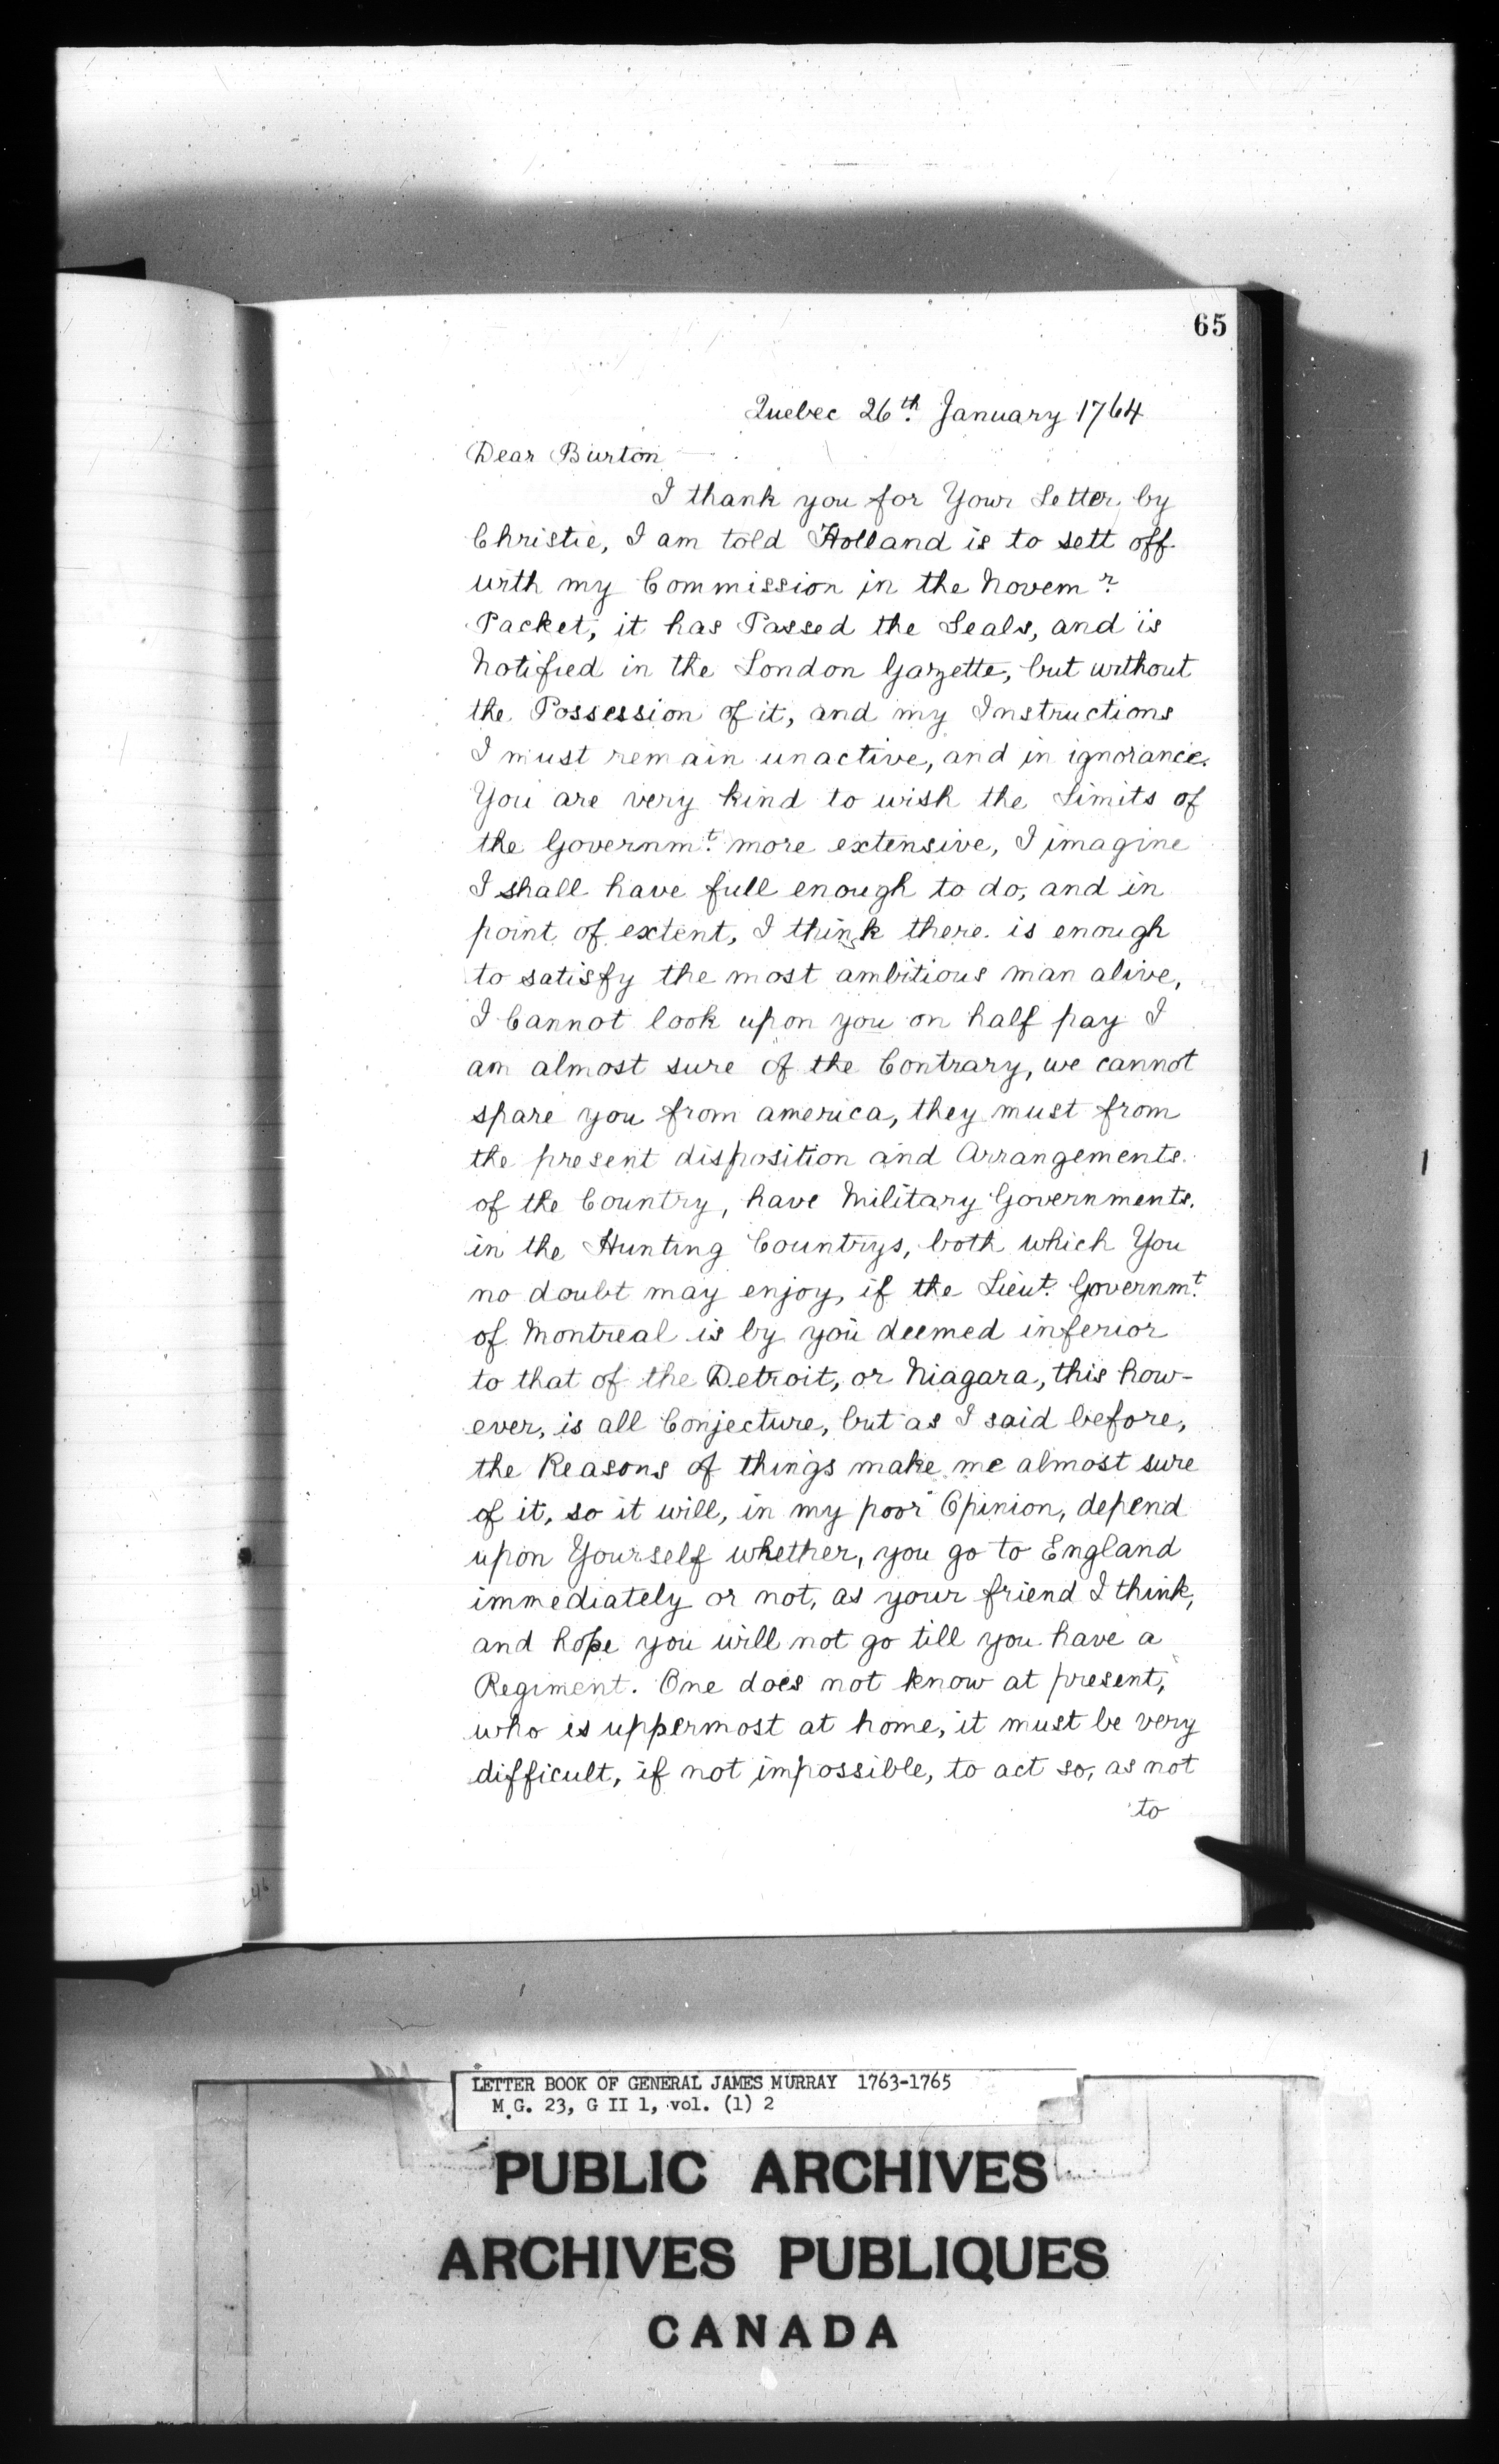 65
Quebec 26th. January 1764
Dear Burton
I thank you for Your Letter, by
Christie, I am told Holland is to sett off
with my Commission in the Novemr.
Packet, it has Passed the Seals, and is
Notified in the London Gazette, but without
the Possession of it, and my Instructions
I must remain unactive, and in ignorance.
You are very kind to wish the Limits of
the Governmt. more extensive, I imagine
I shall have full enough to do, and in
point of extent, I think there is enough
to satisfy the most ambitious man alive,
I Cannot look upon you on half pay I
am almost sure of the Contrary, we cannot
spare you from america, they must from
the present disposition and Arrangements.
of the Country, have Military Governments.
in the Hunting Countrys, both which You
no doubt may enjoy, if the Lieut. Governmt.
of Montreal is by you deemed inferior
to that of the Detroit, or Niagara, this how-
ever, is all Conjecture, but as I said before,
the Reasons of things make me almost sure
of it, so it will, in my poor Opinion, depend
upon Yourself whether, you go to England
immediately or not, as your friend I think,
and hope you will not go till you have a
Regiment. One does not know at present,
who is uppermost at home, it must be very
difficult, if not impossible, to act so, as not
to
LETTER BOOK OF GENERAL JAMES MURRAY 1763-1765
M.G. 23, G II 1, vol. (1) 2
PUBLIC ARCHIVES
ARCHIVES PUBLIQUES
CANADA